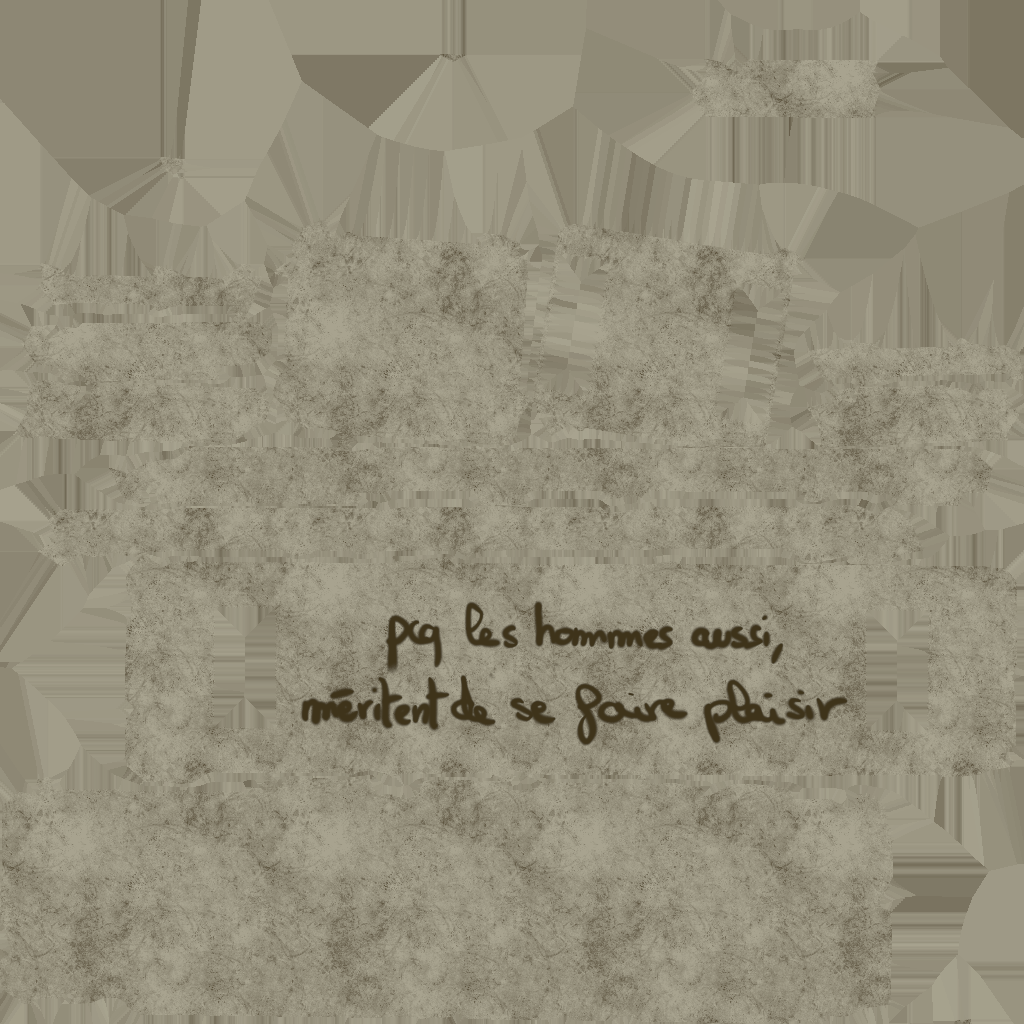 pcq les hommes aussi,
méritent de se faire plaisir